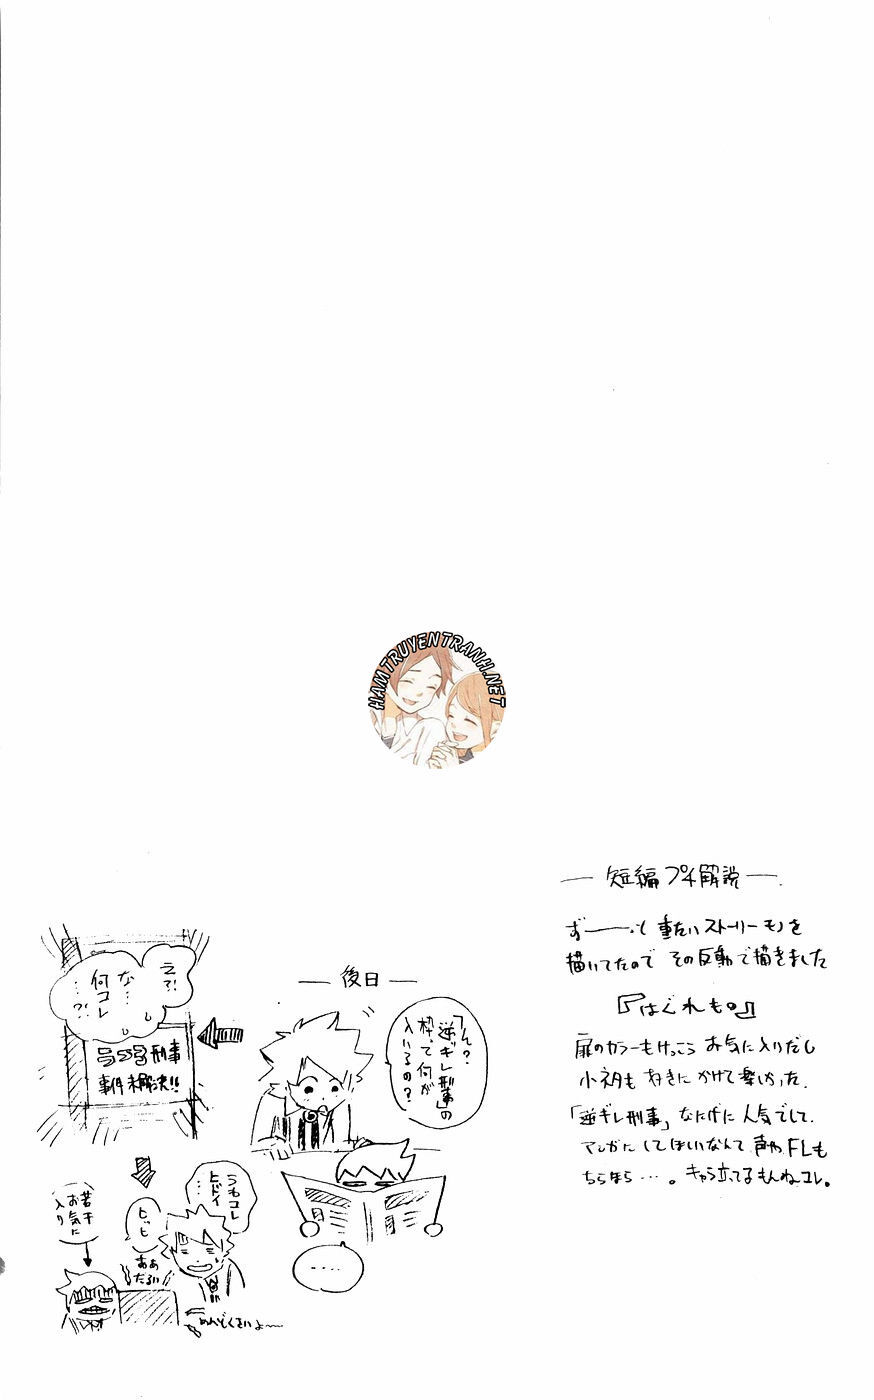 HAMTRUYENTRANH.NET
― 短編プチ解説 ―
ずーーっと 重たいストーリーモノを
描いてたので その反動で描きました
『はぐれも。』
扉のカラーもけっこう お気に入りだし
小ネタも 好きに かけて楽しかった。
「逆ギレ刑事」なにげに人気でして。
マンガに してほしいなんて 声や F.Lも
ちらほら…。キャラ立ってるもんねコレ。
― 後日 ―
「ん?
「逆ギレ刑事」の
枠って何が
入いるの?
‥‥‥
え?!
な…
何コレ
…?!
刑事
事件未解決!!
うわコレ
ヒドイ
…
ヒッヒ
ああ
だるい
めんどくさいよ〜
若干
お気に
入り